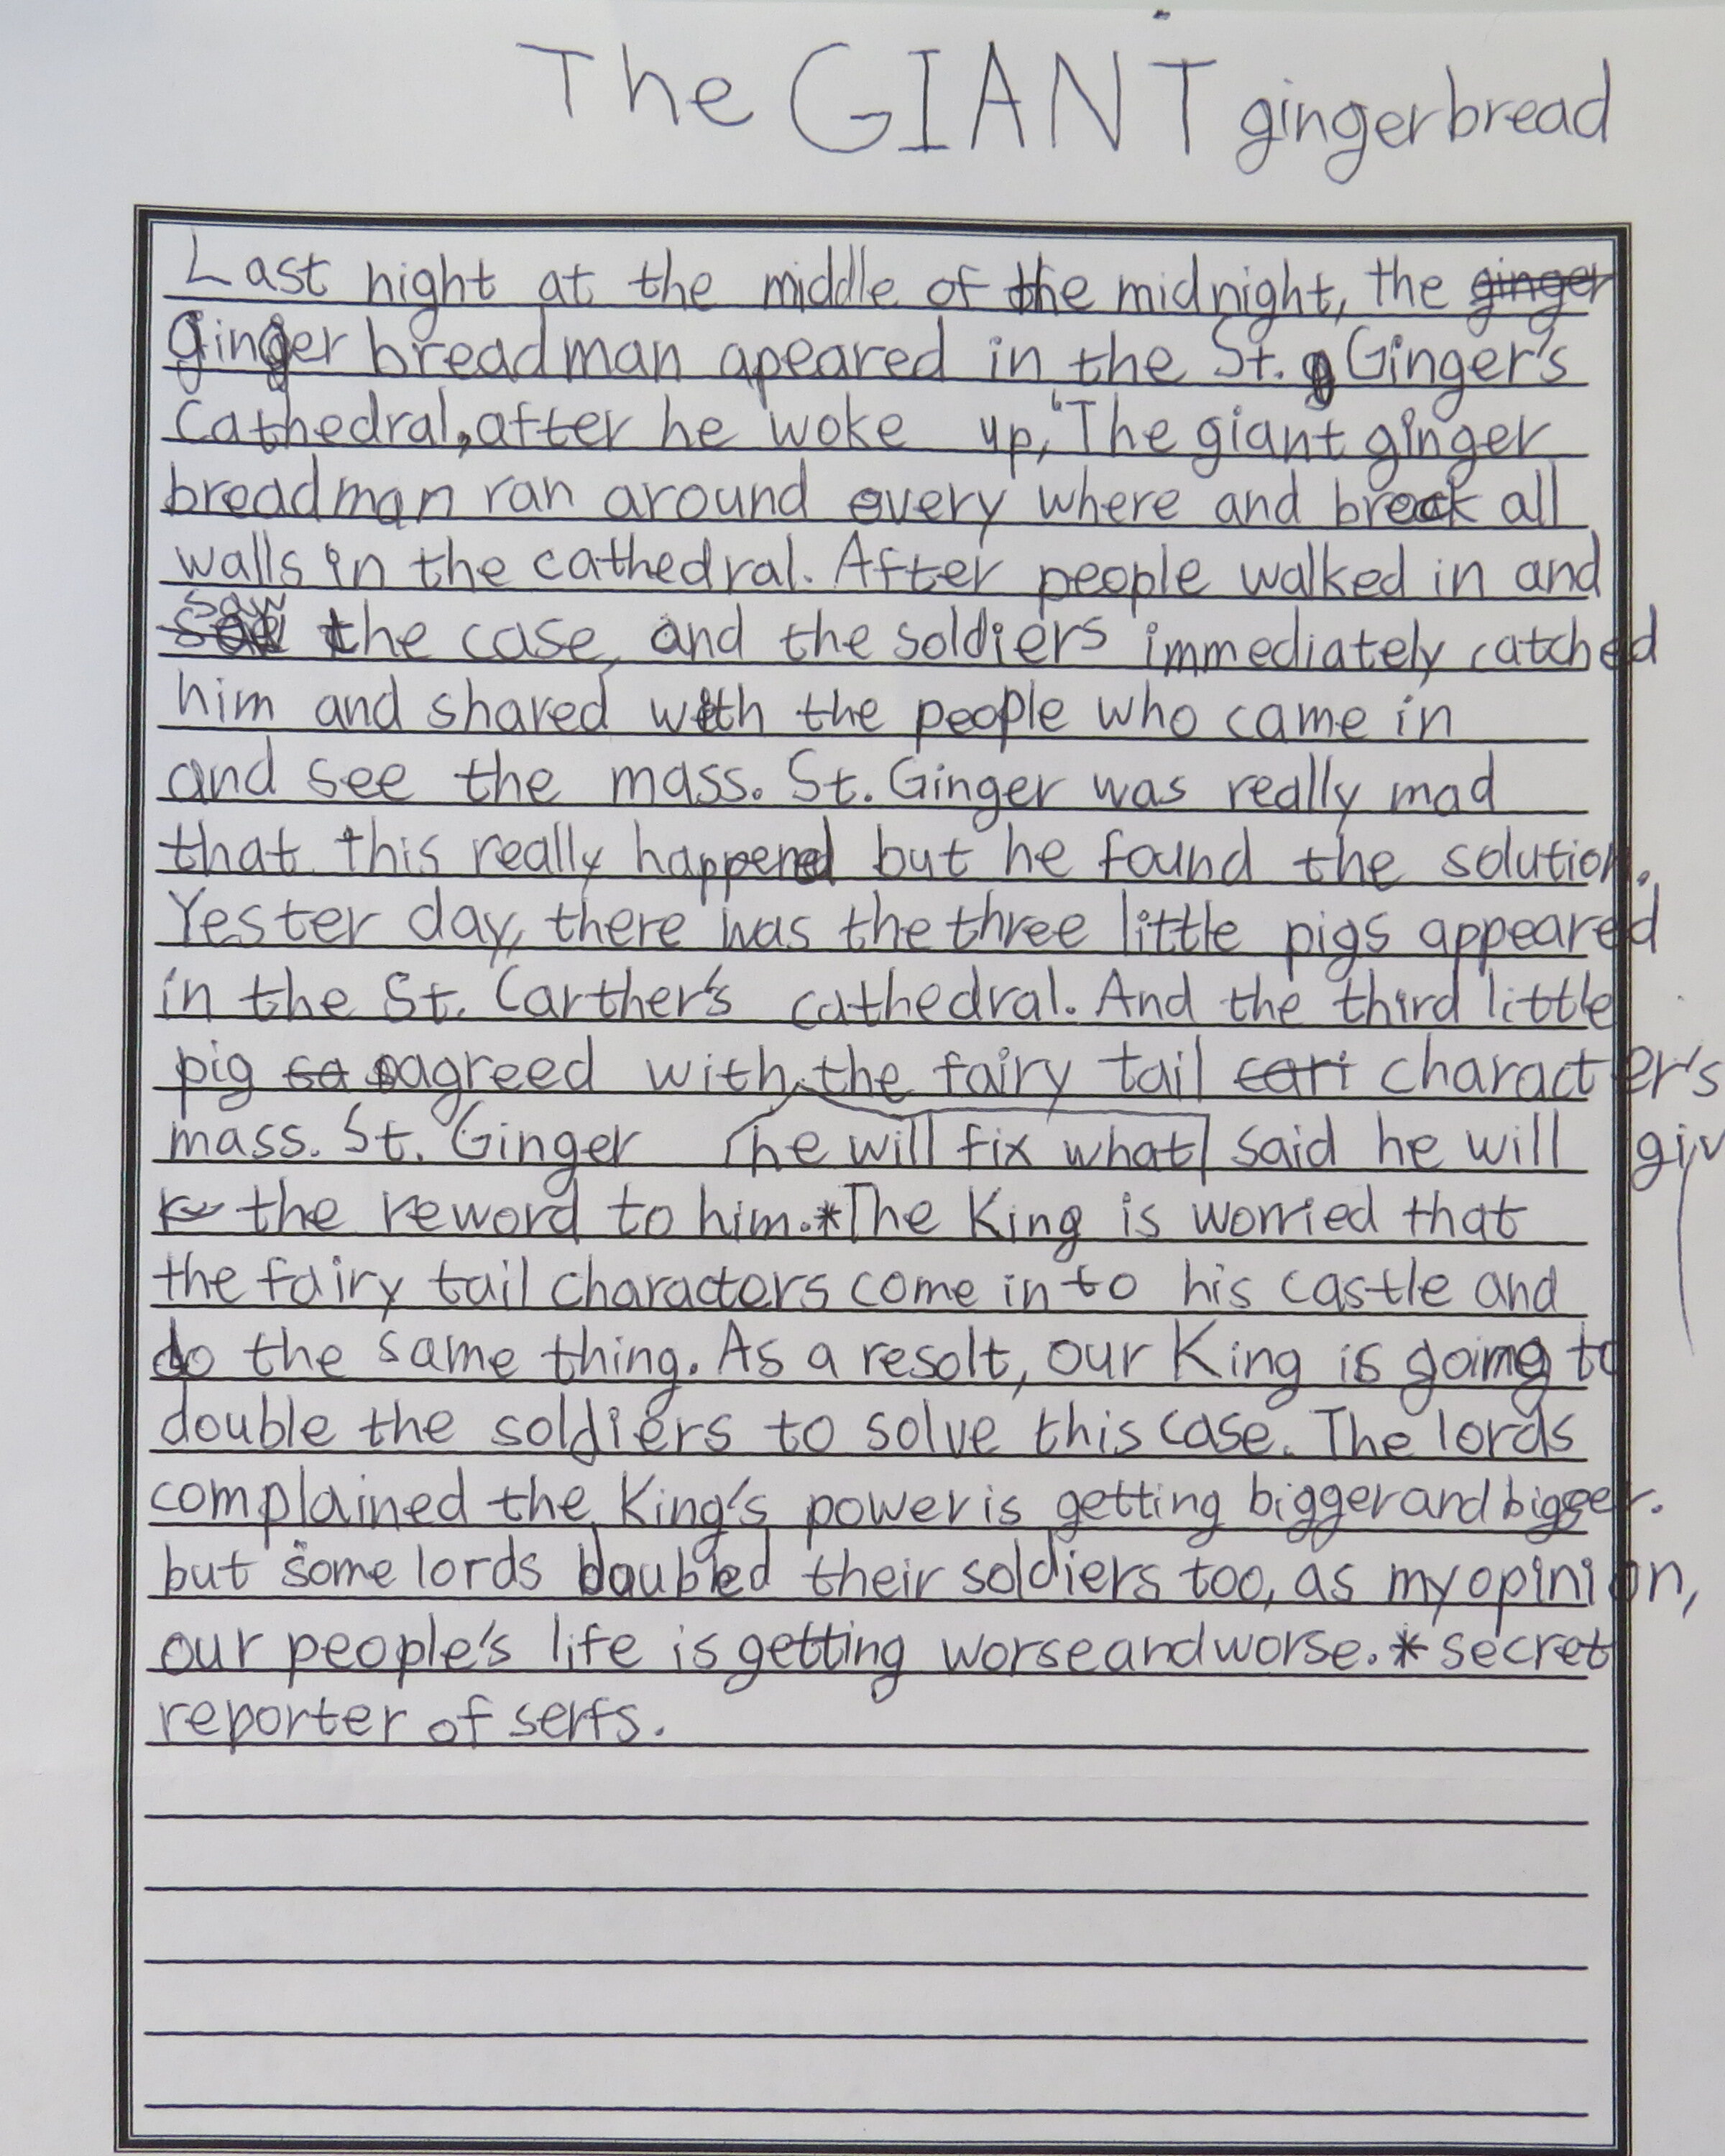 The GIANT gingerbread
Last night at the middle of the midnight, the ginger
Ginger breadman apeared in the St. Ginger's
Cathedral, after he woke up, "The giant ginger
breadman ran around every where and break all
walls in the cathedral. After people walked in and
saw the case, and the soldiers immediately catched
him and shared with the people who came in
and see the mass. St. Ginger was really mad
that this really happened but he found the solution.
Yester day, there was the three little pigs appeared
in the St. Carther's cathedral. And the third little
pig sa agreed with the fairy tail cart character's
mass. St. Ginger he will fix what said he will giv
the reword to him.*The King is worried that
the fairy tail characters come in to his castle and
do the same thing. As a resolt, our King is going to
double the soldiers to solve this case. The lords
complained the King's power is getting bigger and bigger.
but some lords doubled their soldiers too, as my opinion,
our people's life is getting worse and worse. * secret
reporter of serfs.